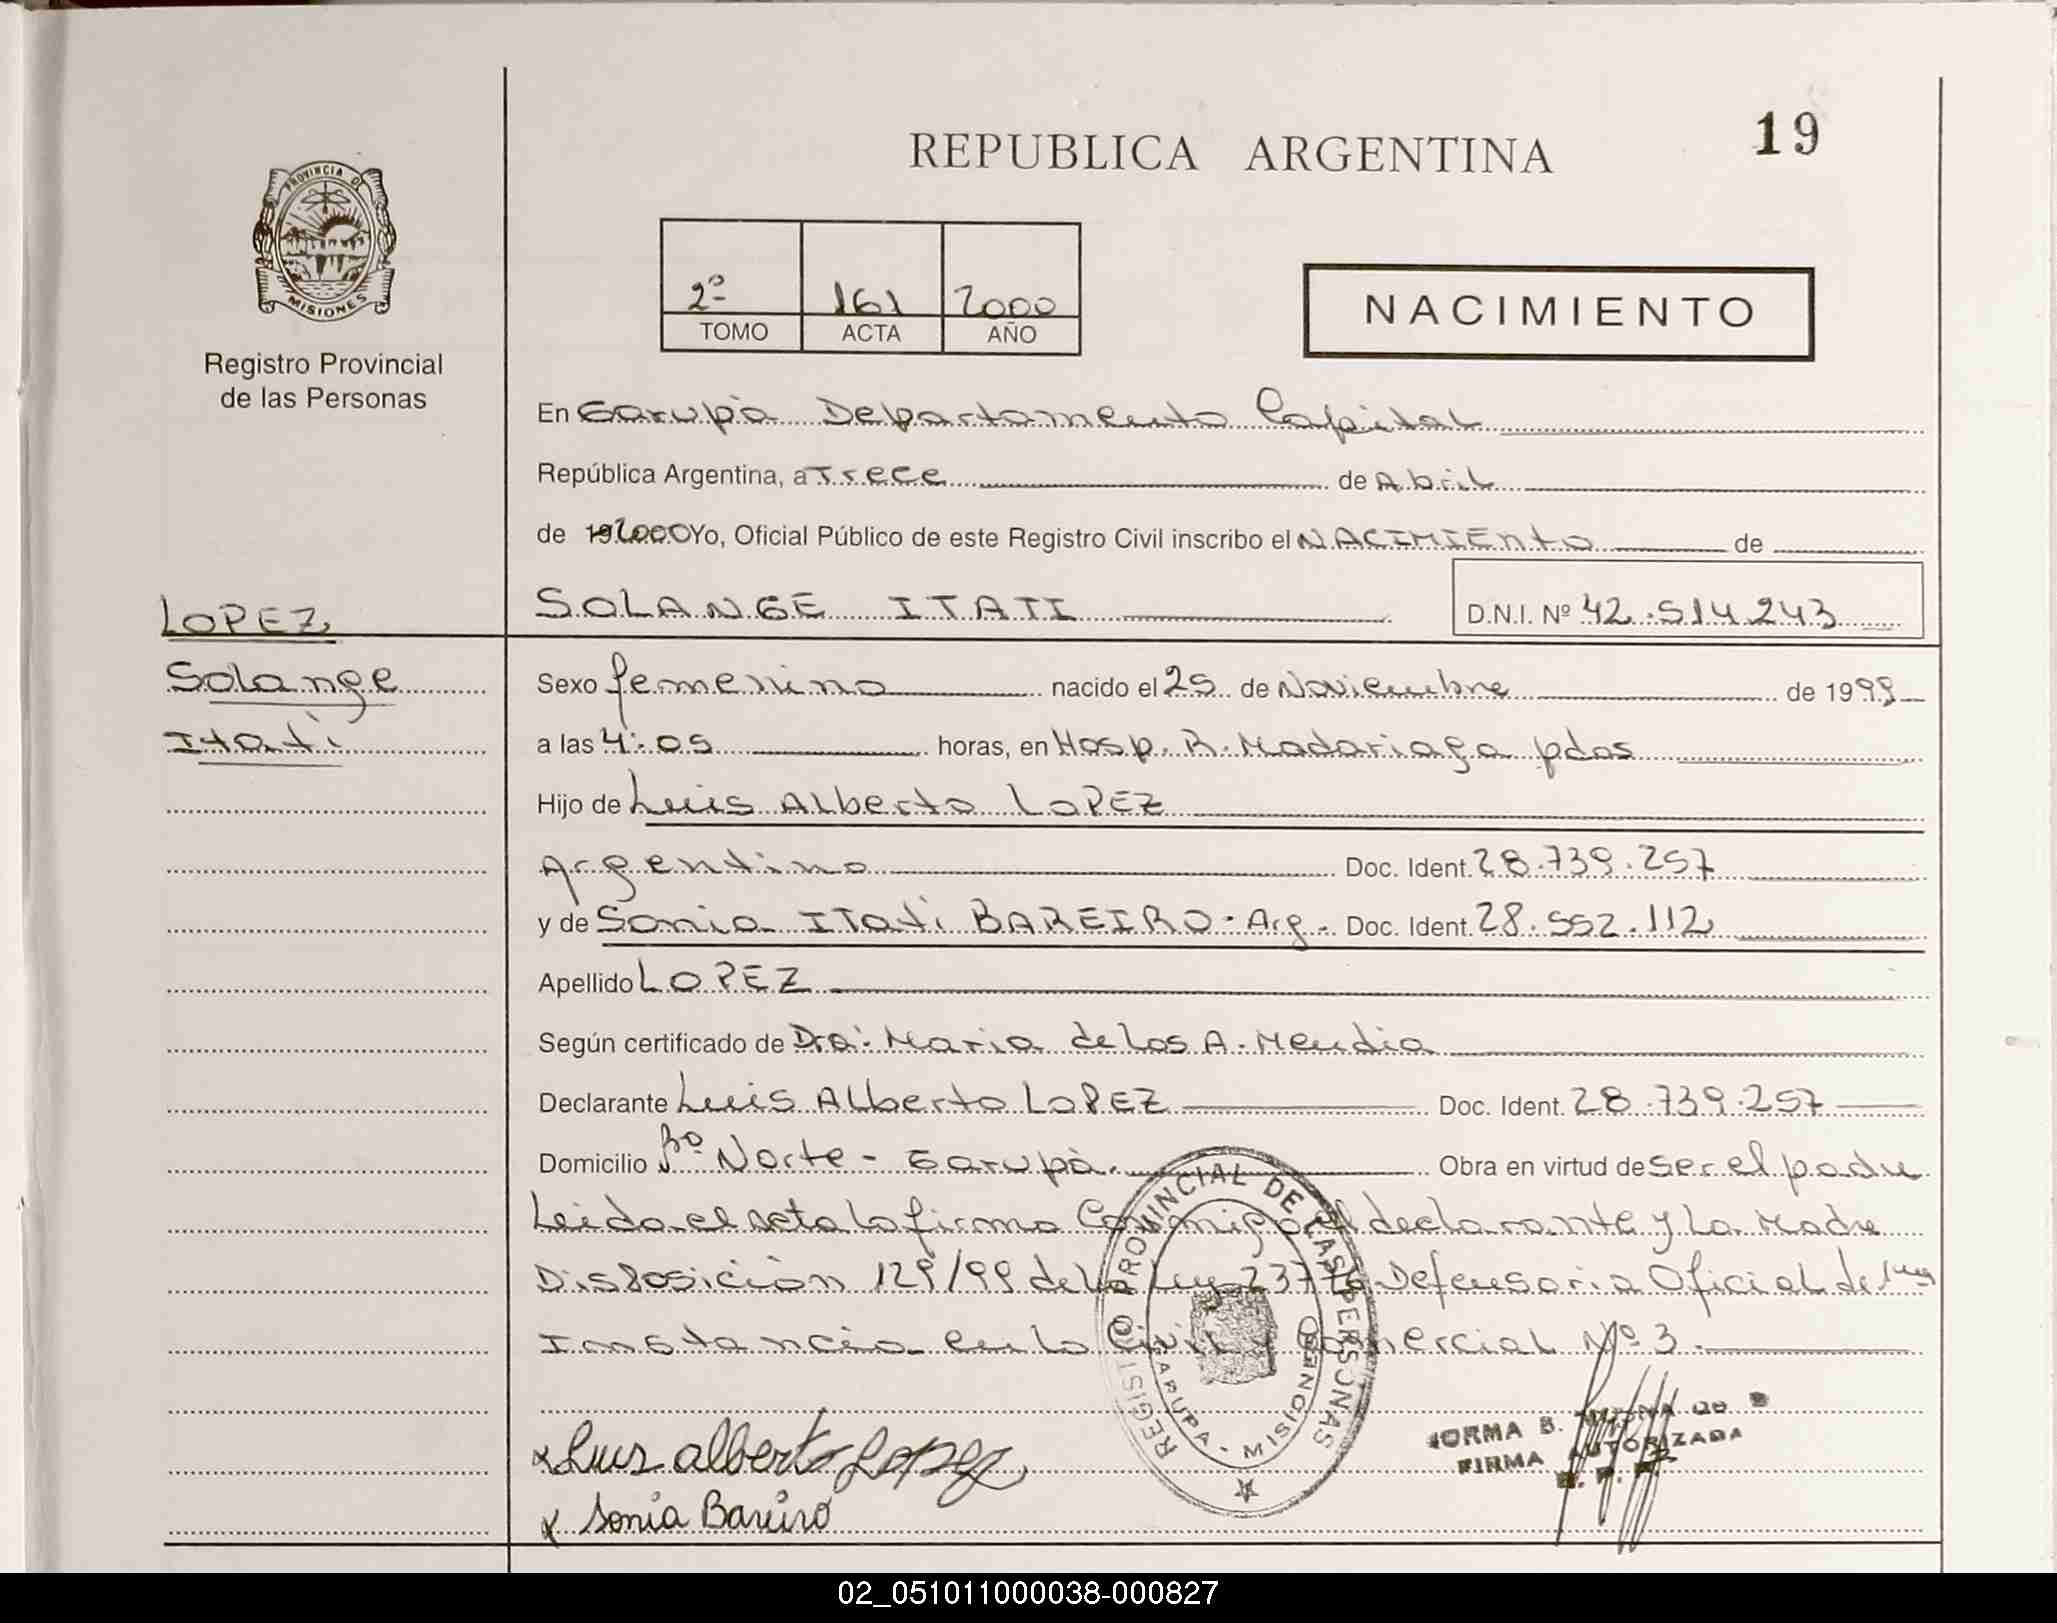 REPUBLICA ARGENTINA
19
PROVINCIA DE
MISIONES
Registro Provincial
de las Personas
2º 161 2000
TOMO ACTA AÑO
NACIMIENTO
En Garupà Departamento Capital
República Argentina, a Trece de Abril
de 192000 Yo, Oficial Público de este Registro Civil inscribo el NACIMIENTO de
LOPEZ
Solange
Itati
SOLANGE ITATI D.N.I. Nº 42.514.243
Sexo femenino nacido el 25 de Noviembre de 1999
a las 4:05 horas, en Hosp. R. Madariaga pdas
Hijo de Luis Alberto LOPEZ
Argentino Doc. Ident. 28.739.257
y de Sonia ITati BAREIRO - Arg. Doc. Ident. 28.552.112
Apellido LOPEZ
Según certificado de Dra: Maria de los A. Mendia
Declarante Luis Alberto LOPEZ Doc. Ident. 28.739.257
Domicilio Bº Norte - Garupà. Obra en virtud de ser el padre
Leida el acta la firma Conmigo el declarante y La Madre
Disposición 129/99 de la Ley 23776 Defensoria Oficial de
Instancia en lo Civil y Comercial Nº 3.
REGISTRO PROVINCIAL DE LAS PERSONAS
GARUPA - MISIONES
x Luis alberto Lopez
x Sonia Bareiro
NORMA B.
FIRMA AUTORIZADA
02_051011000038-000827